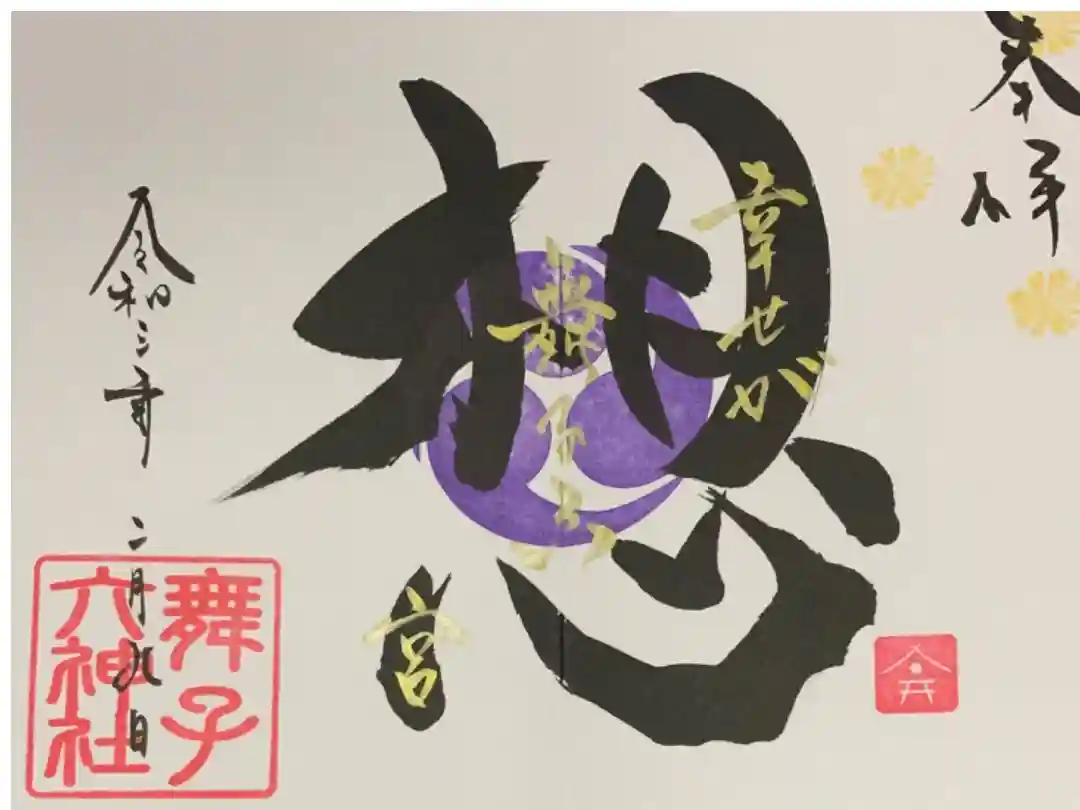 奉拝
想
幸せが
舞
宮
令和三年 二月九日
舞子
六神社